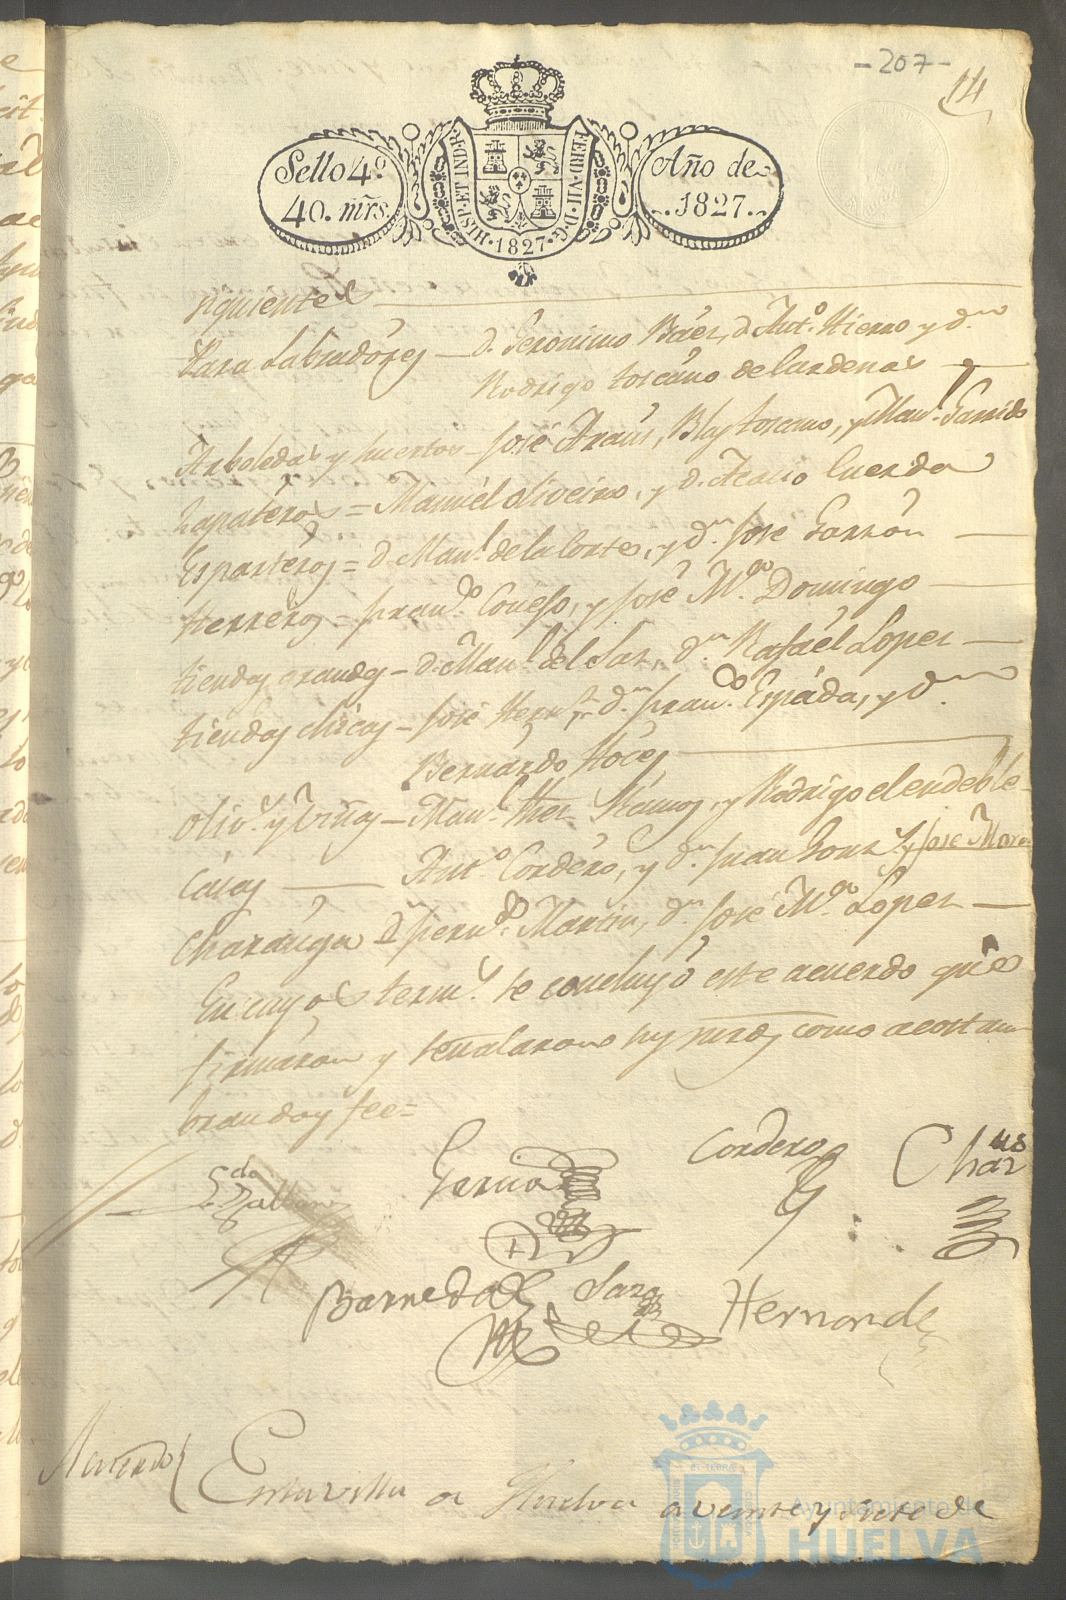 -207-
14
Sello 4º
40. mrs.
HISP. ET IND. R.
FERD. VII. D. G.
·1827·
Año de
1827.
siguientes
Para Labradores — D. Geronimo Báez, d. Antº. Hierro y dn
Rodrigo toscano de Cardenas —
Arboledas y huertas — José Araus, Blas toscano, y Manl. Garrido
Zapateros = Manuel oliveira, y d. Acacio Cuerda
Esparteros = d. Manl. de la Corte, y dn. José Garzón —
Herreros = Franco. Conejo, y José Mª. Domingo —
tiendas grandes — d. Manl. del Saz, dn Rafaél Lopez —
tiendas chicas — José Hernz dn. Franco. Espáda, y dn.
Bernardo Hoces
oliv.s y viñas — Manl. Ramos, y Rodrigo elendeble
casas — Antº. Cordéro, y dn. Juan Gonz y José Mora
Charánga dn Ferndo. Martin, dn. José Mª. Lopez —
En cuyos term.s se concluyó este acuerdo que
firmáron y señalaron sus mrds como acostum
bran doy fee =
Cordero
Char
Garna
Barreda
Saz
Hernand
Acuerdo { En la villa de Huelva a veinte y siete de
Ayuntamiento de
HUELVA